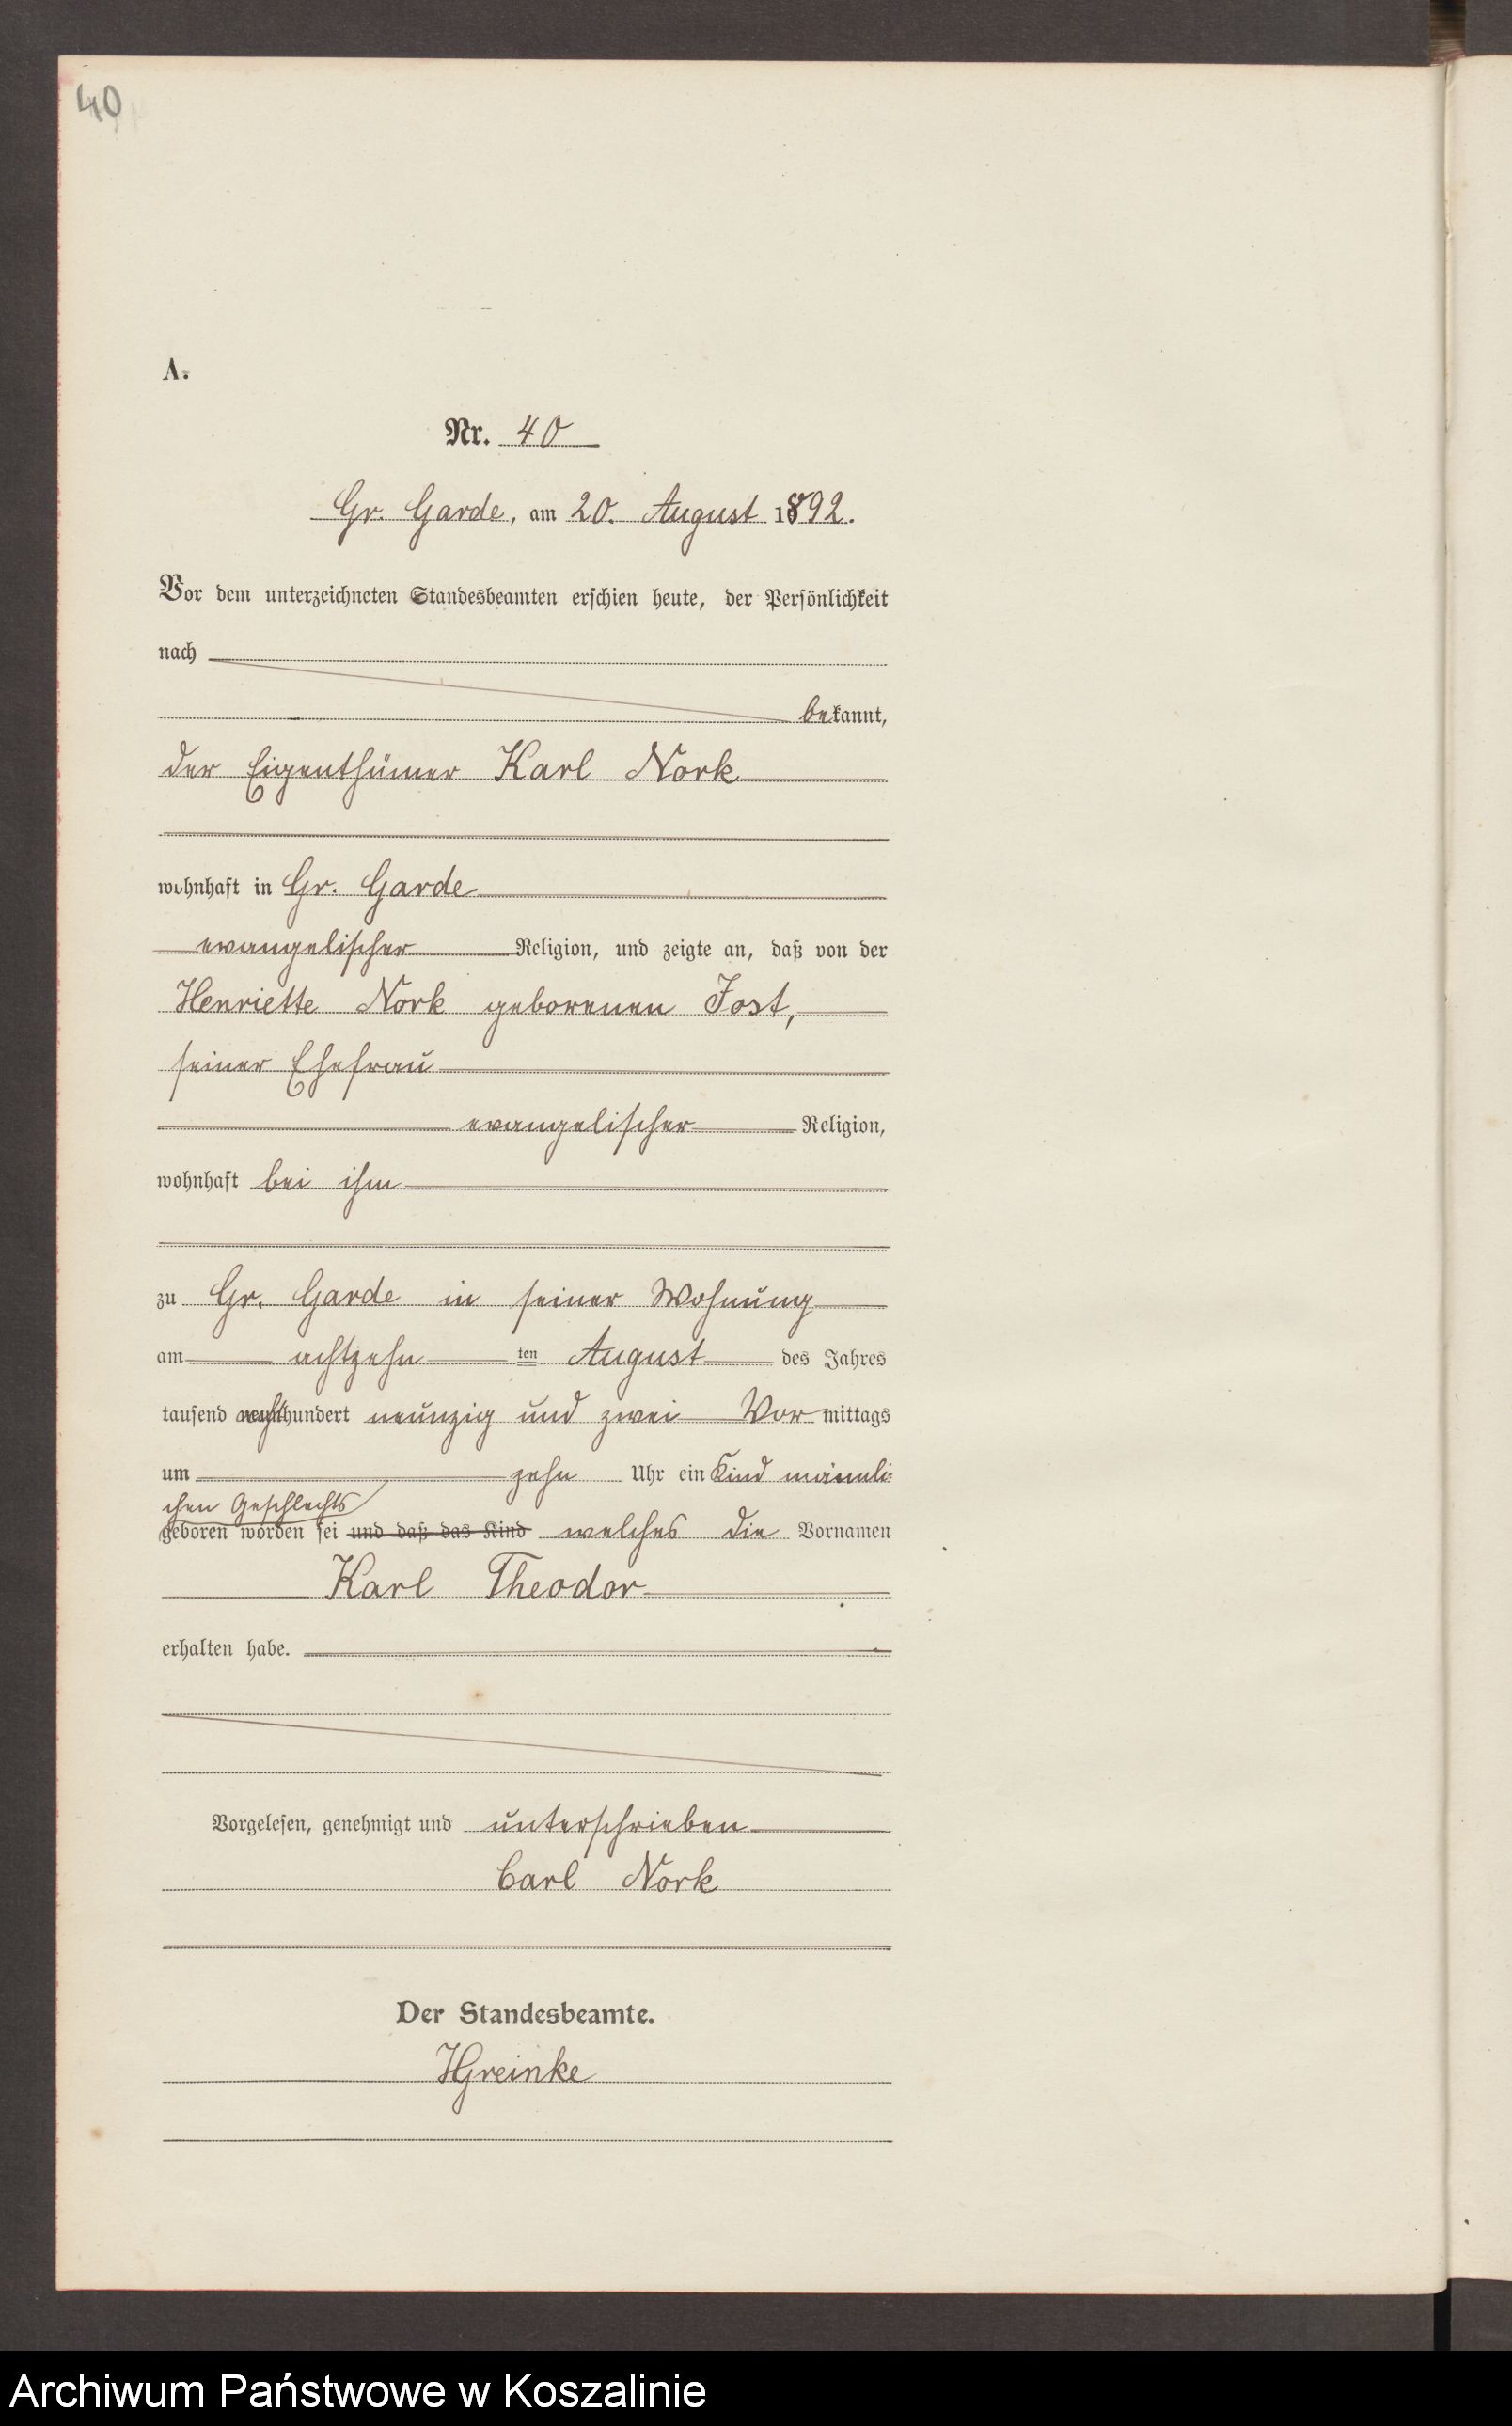 40
A.
Nr. 40
Gr. Garde, am 20. August 1892.
Vor dem unterzeichneten Standesbeamten erschien heute, der Persönlichkeit
nach
bekannt,
der Eigenthümer Karl Nork
wohnhaft in Gr. Garde
evangelischer Religion, und zeigte an, daß von der
Henriette Nork geborenen Jost,
seiner Ehefrau
evangelischer Religion,
wohnhaft bei ihm
zu Gr. Garde in seiner Wohnung
am achtzehn ten August des Jahres
tausend achthundert neunzig und zwei Vormittags
um zehn Uhr ein Kind männli-
chen Geschlechts
geboren worden sei und daß das Kind welches die Vornamen
Karl Theodor
erhalten habe.
Vorgelesen, genehmigt und unterschrieben
Carl Nork
Der Standesbeamte.
HGreinke
Archiwum Państwowe w Koszalinie